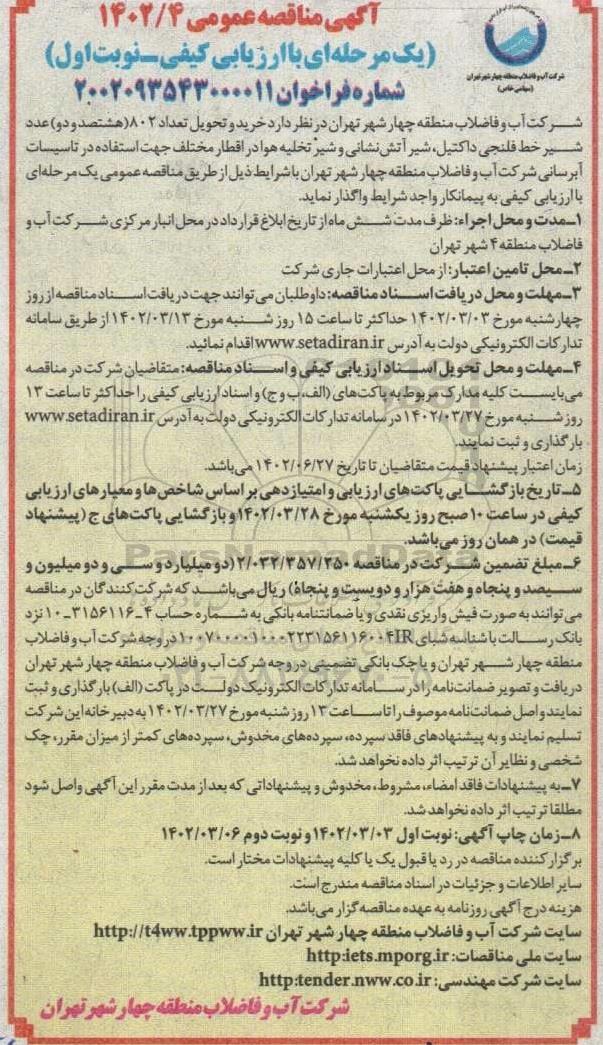 آگهی مناقصه عمومی ۱۴۰۲/۴
(یک مرحله‌ای با ارزیابی کیفی-نوبت اول)
شماره فراخوان ۲۰۰۲۰۹۳۵۴۳۰۰۰۰۱۱
شرکت آب و فاضلاب منطقه چهار شهر تهران
(سهامی خاص)
شرکت آب و فاضلاب منطقه چهار شهر تهران در نظر دارد خرید و تحویل تعداد ۸۰۲ (هشتصد و دو) عدد
شیر خط فلنجی داکتیل، شیر آتش نشانی و شیر تخلیه هوا در اقطار مختلف جهت استفاده در تاسیسات
آبرسانی شرکت آب و فاضلاب منطقه چهار شهر تهران با شرایط ذیل از طریق مناقصه عمومی یک مرحله‌ای
با ارزیابی کیفی به پیمانکار واجد شرایط واگذار نماید.
۱-مدت و محل اجراء: ظرف مدت شش ماه از تاریخ ابلاغ قرارداد در محل انبار مرکزی شرکت آب و
فاضلاب منطقه ۴ شهر تهران
۲-محل تامین اعتبار: از محل اعتبارات جاری شرکت
۳-مهلت و محل دریافت اسناد مناقصه: داوطلبان می‌توانند جهت دریافت اسناد مناقصه از روز
چهارشنبه مورخ ۱۴۰۲/۰۳/۰۳ حداکثر تا ساعت ۱۵ روز شنبه مورخ ۱۴۰۲/۰۳/۱۳ از طریق سامانه
تدارکات الکترونیکی دولت به آدرس www.setadiran.ir اقدام نمائید.
۴-مهلت و محل تحویل اسناد ارزیابی کیفی و اسناد مناقصه: متقاضیان شرکت در مناقصه
می‌بایست کلیه مدارک مربوط به پاکت‌های (الف، ب و ج) و اسناد ارزیابی کیفی را حداکثر تا ساعت ۱۳
روز شنبه مورخ ۱۴۰۲/۰۳/۲۷ در سامانه تدارکات الکترونیکی دولت به آدرس www.setadiran.ir
بارگذاری و ثبت نمایند.
زمان اعتبار پیشنهاد قیمت متقاضیان تا تاریخ ۱۴۰۲/۰۶/۲۷ می‌باشد.
۵-تاریخ بازگشایی پاکت‌های ارزیابی و امتیازدهی بر اساس شاخص‌ها و معیارهای ارزیابی
کیفی در ساعت ۱۰ صبح روز یکشنبه مورخ ۱۴۰۲/۰۳/۲۸ و بازگشایی پاکت‌های ج (پیشنهاد
قیمت) در همان روز می‌باشد.
۶-مبلغ تضمین شرکت در مناقصه ۲/۰۳۲/۳۵۷/۲۵۰ (دو میلیارد و سی و دو میلیون و
سیصد و پنجاه و هفت هزار و دویست و پنجاه) ریال می‌باشد که شرکت کنندگان در مناقصه
می‌توانند به صورت فیش واریزی نقدی و یا ضمانتنامه بانکی به شماره حساب ۴-۳۱۵۶۱۱۶-۱۰ نزد
بانک رسالت با شناسه شبای ۱۰۰۷۰۰۰۰۱۰۰۰۲۲۳۱۵۶۱۱۶۰۰۴IR در وجه شرکت آب و فاضلاب
منطقه چهار شهر تهران و یا چک بانکی تضمینی در وجه شرکت آب و فاضلاب منطقه چهار شهر تهران
دریافت و تصویر ضمانت‌نامه را در سامانه تدارکات الکترونیک دولت در پاکت (الف) بارگذاری و ثبت
نمایند و اصل ضمانت‌نامه موصوف را تا ساعت ۱۳ روز شنبه مورخ ۱۴۰۲/۰۳/۲۷ به دبیرخانه این شرکت
تسلیم نمایند و به پیشنهادهای فاقد سپرده، سپرده‌های مخدوش، سپرده‌های کمتر از میزان مقرر، چک
شخصی و نظایر آن ترتیب اثر داده نخواهد شد.
۷-به پیشنهادات فاقد امضاء، مشروط، مخدوش و پیشنهاداتی که بعد از مدت مقرر این آگهی واصل شود
مطلقا ترتیب اثر داده نخواهد شد.
۸-زمان چاپ آگهی: نوبت اول ۱۴۰۲/۰۳/۰۳ و نوبت دوم ۱۴۰۲/۰۳/۰۶
برگزار کننده مناقصه در رد یا قبول یک یا کلیه پیشنهادات مختار است.
سایر اطلاعات و جزئیات در اسناد مناقصه مندرج است.
هزینه درج آگهی روزنامه به عهده مناقصه گزار می‌باشد.
سایت شرکت آب و فاضلاب منطقه چهار شهر تهران http://t4ww.tppww.ir
سایت ملی مناقصات: http:iets.mporg.ir
سایت شرکت مهندسی: http:tender.nww.co.ir
شرکت آب و فاضلاب منطقه چهار شهر تهران
ParsNamadData